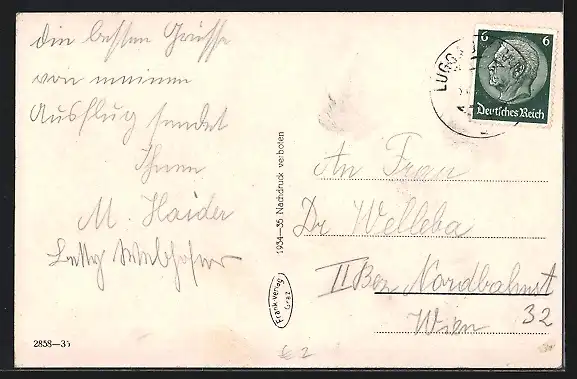 die besten Grüsse
von meinem
Ausflug sendet
Ihnen
M. Haider
Betty
2858—35
1934—35 Nachdruck verboten
Frank-Verlag
Graz
LUGG
6 6
Deutsches Reich
An Frau
Dr Welleba
II Bez Nordbahnst
32
Wien